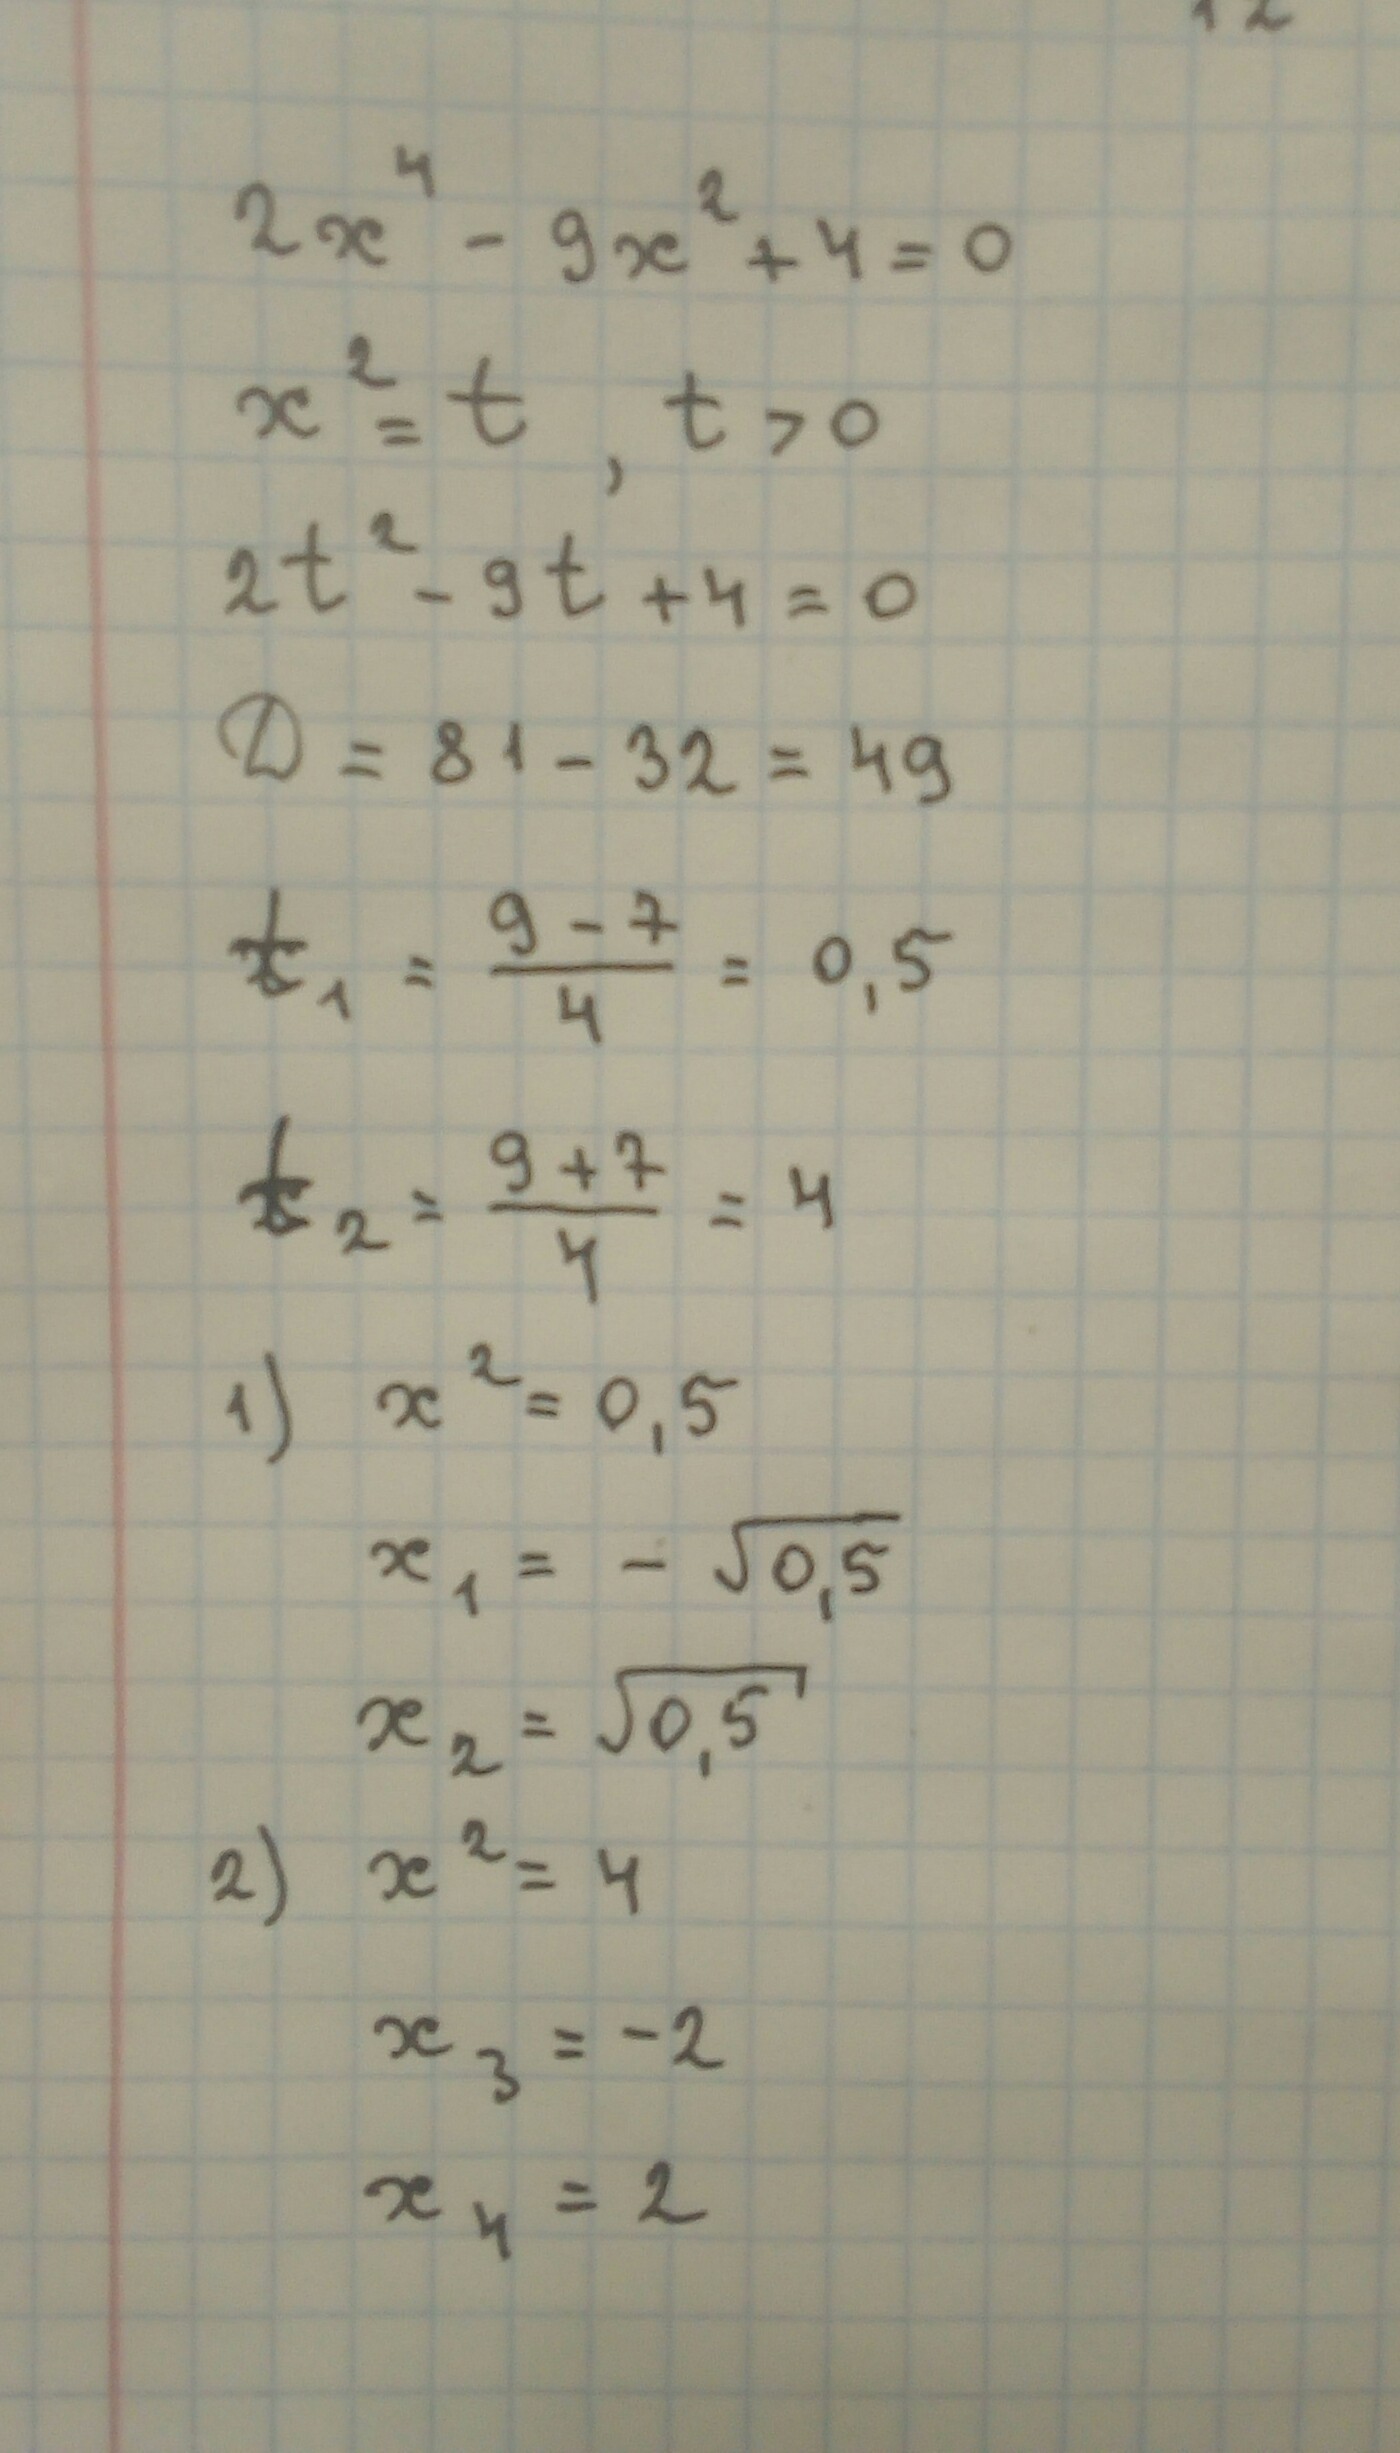 12
2x⁴ - 9x² + 4 = 0
x² = t , t > 0
2t² - 9t + 4 = 0
D = 81 - 32 = 49
t₁ = (9 - 7)/4 = 0,5
t₂ = (9 + 7)/4 = 4
1) x² = 0,5
x₁ = - √0,5
x₂ = √0,5
2) x² = 4
x₃ = -2
x₄ = 2